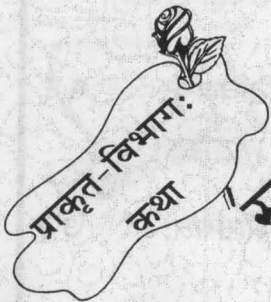 प्राकृत-विभागः
कथा